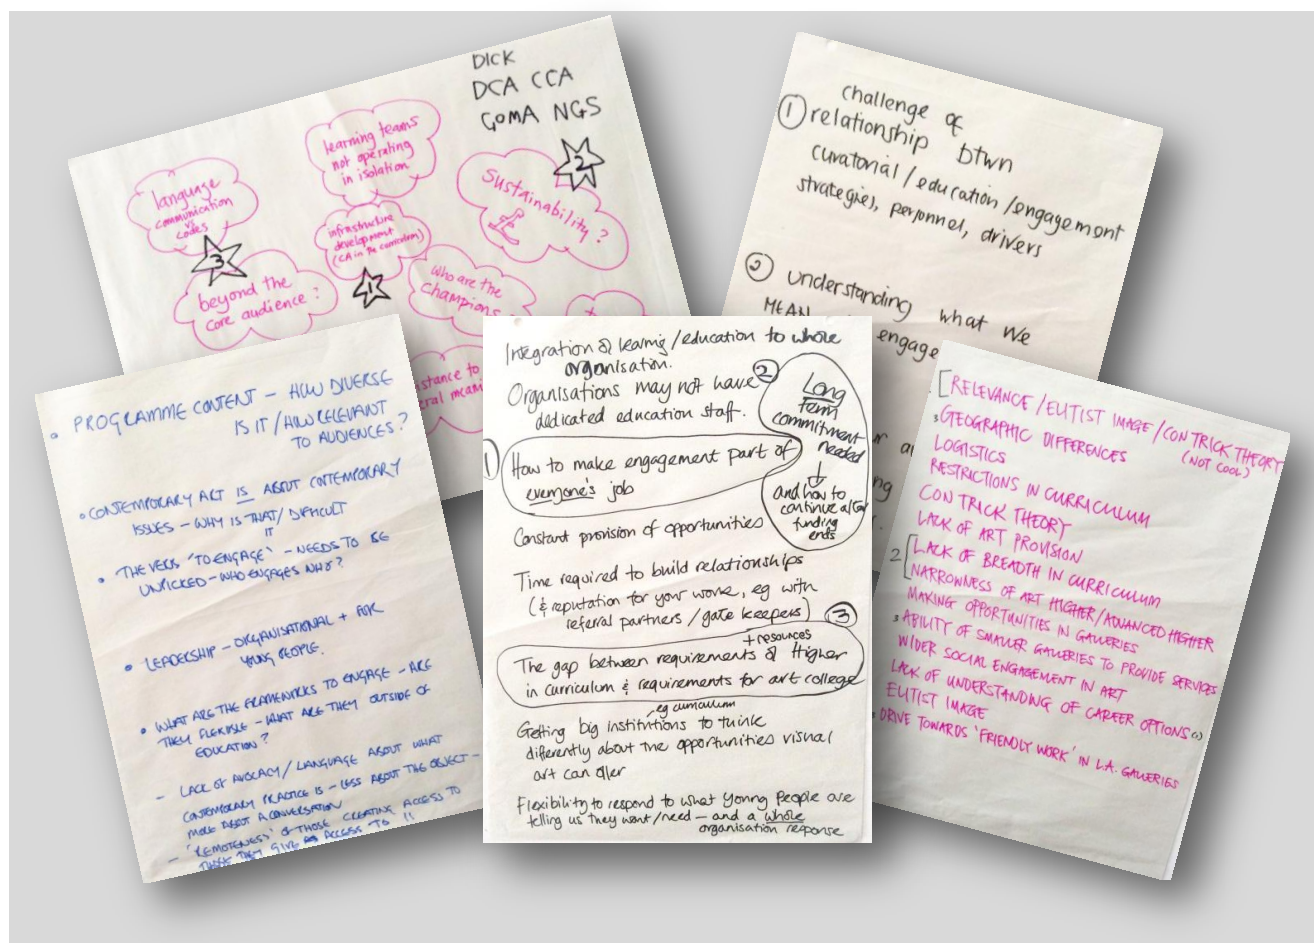 DICK
DCA CCA
GOMA NGS
learning teams
not operating
in isolation
2
Sustainability?
language
communication
vs
codes
3
infrastructure
development
(CA in the curriculum)
1
beyond the
core audience?
who are the
champions
stance to
challenge of
1 relationship btwn
curatorial / education / engagement
strategies, personnel, drivers
2 understanding what we
MEAN
engage
• PROGRAMME CONTENT – HOW DIVERSE
IS IT / HOW RELEVANT
TO AUDIENCES?
• CONTEMPORARY ART IS ABOUT CONTEMPORARY
ISSUES – WHY IS THAT / DIFFICULT
IT
• THE VERB 'TO ENGAGE' – NEEDS TO BE
UNPICKED – WHO ENGAGES WHO?
• LEADERSHIP – ORGANISATIONAL + FOR
YOUNG PEOPLE.
• WHAT ARE THE FRAMEWORKS TO ENGAGE – ARE
THEY FLEXIBLE – WHAT ARE THEY OUTSIDE OF
EDUCATION?
– LACK OF AVOCACY / LANGUAGE ABOUT WHAT
CONTEMPORARY PRACTICE IS – LESS ABOUT THE OBJECT –
MORE ABOUT A CONVERSATION
– 'REMOTENESS' OF THOSE CREATING ACCESS TO
THOSE THEY GIVE ACCESS TO !!
Integration of learning / education to whole
organisation.
Organisations may not have
dedicated education staff.
2
Long
term
commitment
needed
and how to
continue after
funding
ends
1 How to make engagement part of
everyone's job
Constant provision of opportunities
Time required to build relationships
(& reputation for your work, eg with
referral partners / gate keepers)
3
+ resources
The gap between requirements of Higher
in curriculum & requirements for art college
eg curriculum
Getting big institutions to think
differently about the opportunities visual
art can offer
Flexibility to respond to what young people are
telling us they want / need – and a whole
organisation response
RELEVANCE / ELITIST IMAGE / CON TRICK THEORY
(NOT COOL)
3 GEOGRAPHIC DIFFERENCES
LOGISTICS
RESTRICTIONS IN CURRICULUM
CON TRICK THEORY
LACK OF ART PROVISION
2 LACK OF BREADTH IN CURRICULUM
NARROWNESS OF ART HIGHER / ADVANCED HIGHER
MAKING OPPORTUNITIES IN GALLERIES
3 ABILITY OF SMALLER GALLERIES TO PROVIDE SERVICES
WIDER SOCIAL ENGAGEMENT IN ART
LACK OF UNDERSTANDING OF CAREER OPTIONS
ELITIST IMAGE
DRIVE TOWARDS 'FRIENDLY WORK' IN L.A. GALLERIES